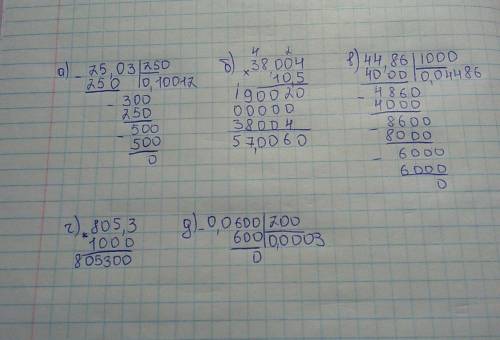 а) - 25,03 | 250
250 | 0,10012
- 300
250
- 500
500
0
б) 4 2
× 38,004
10,5
190020
00000
38004
57,0060
в) 44,86 | 1000
4000 | 0,04486
- 4860
4000
- 8600
8000
- 6000
6000
0
г) × 805,3
1000
805300
д) - 0,0600 | 200
600 | 0,0003
0